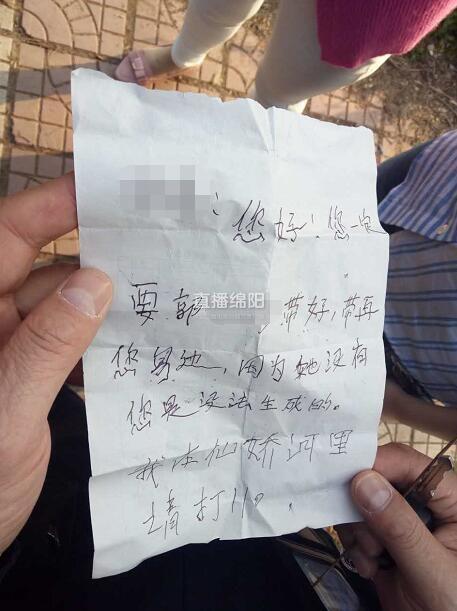 ：您好！您一定
要郭 带好，带再
直播绵阳
您身边，因为她没有
您是没法生成的。
我在仙娇河里
请打110。